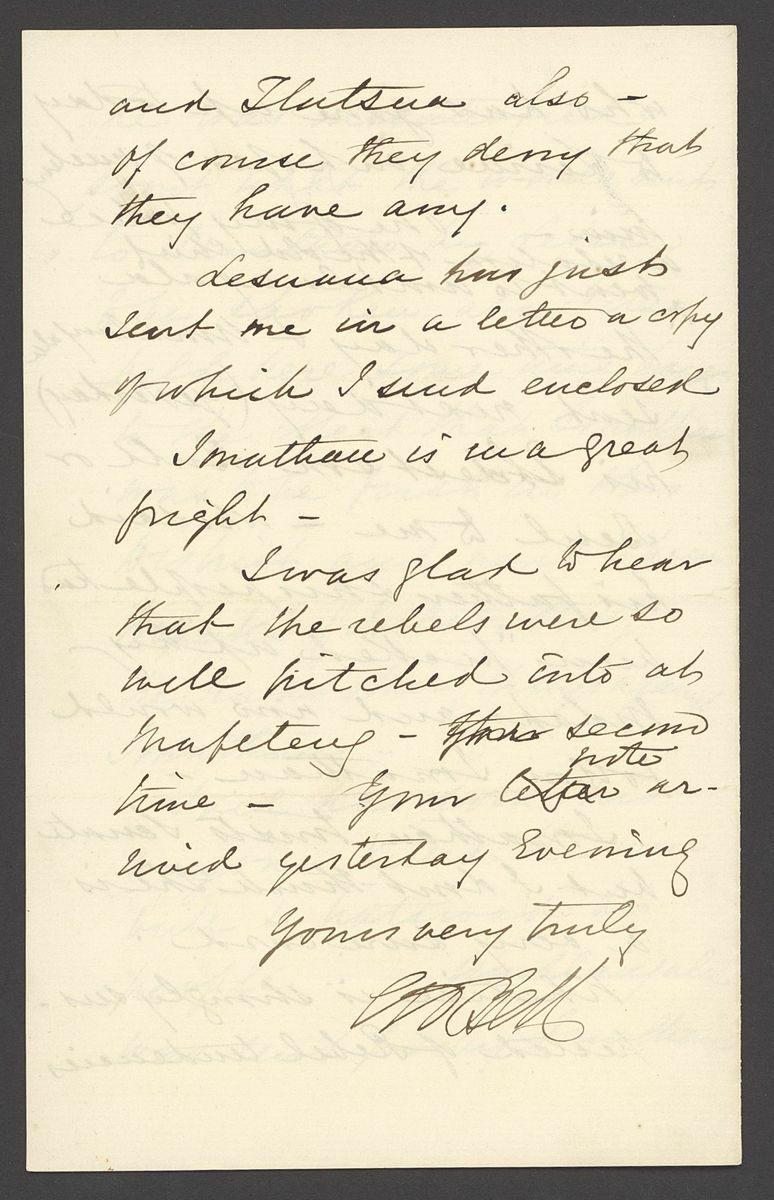 and Tlutsua also –
of course they deny that
they have any.
Lesuana has just
sent me in a letter a copy
of which I send enclosed
Jonathan is in a great
fright –
I was glad to hear
that the rebels were so
well pitched into at
Mafeteng – second
note
time – Your letter ar-
rived yesterday Evening
Yours very truly
Bell